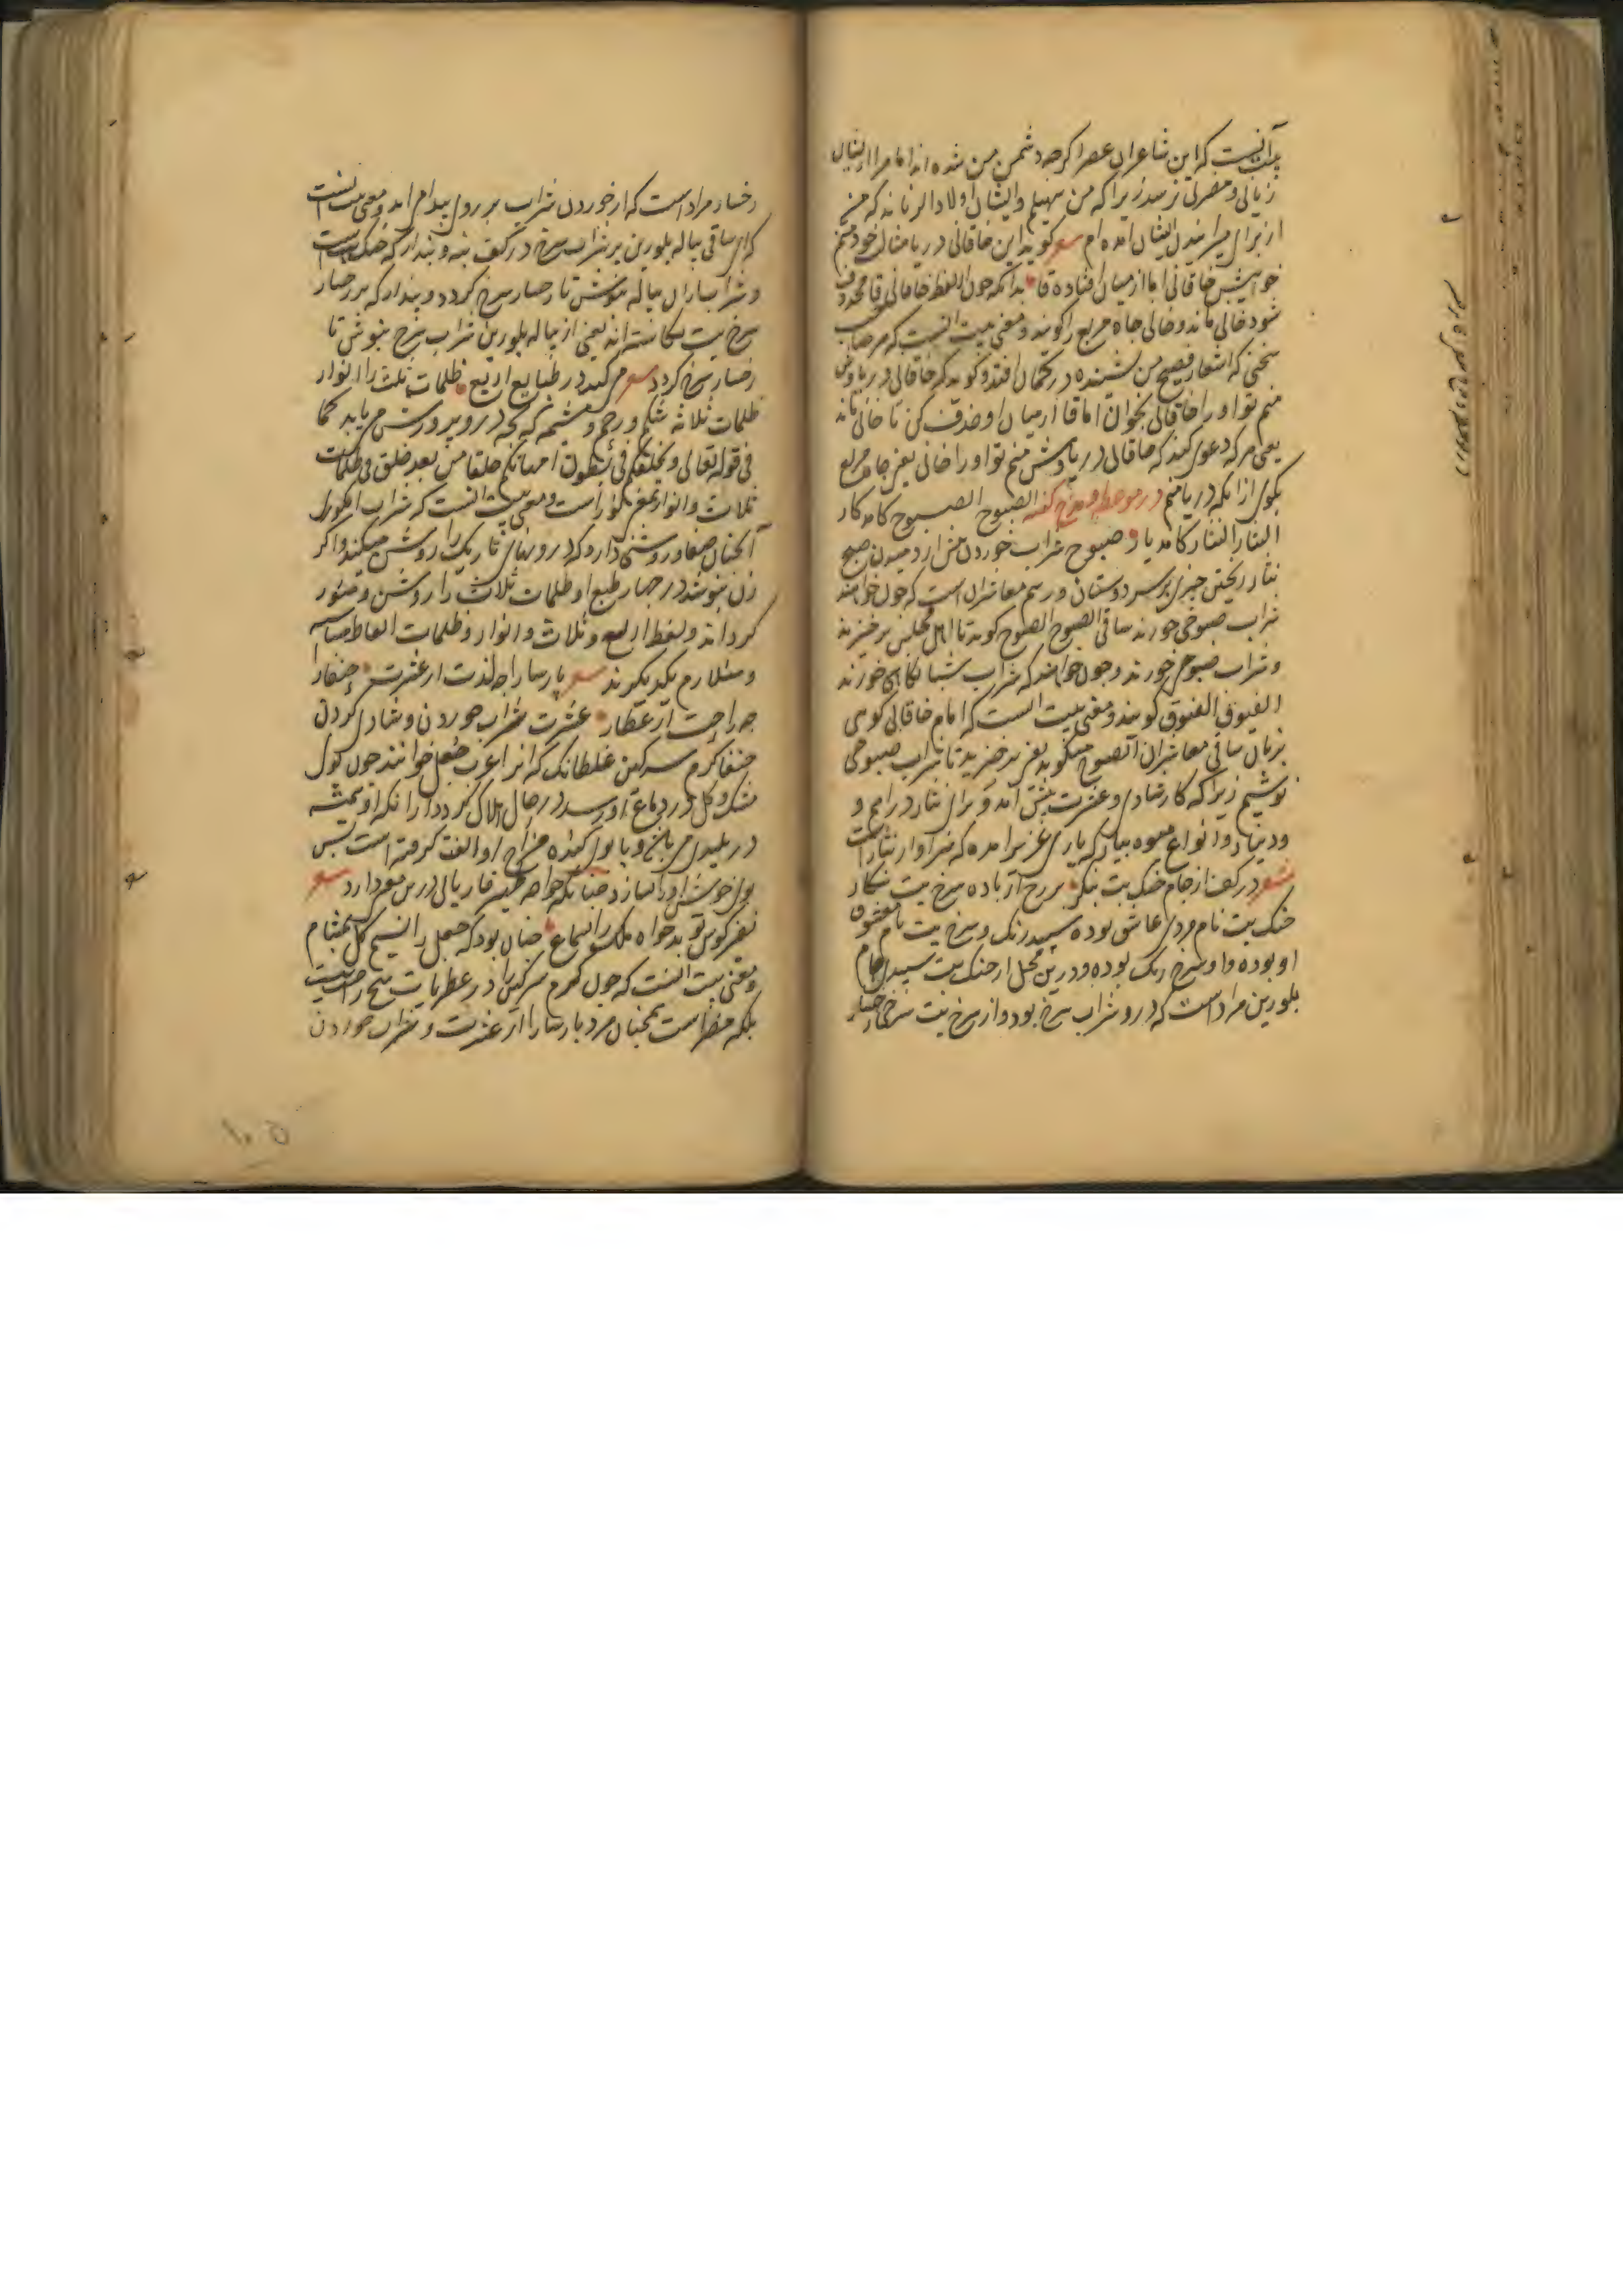 آنست که این شاعران عصر اگرچه دشمن من شده اند اما مرا از ایشان
زیانی و مضرتی نرسد زیرا که من سهیلم و ایشان اولاد الزنا اند که من
از برای میرانیدن ایشان آمده ام شعر گوید این خاقانی دریا مثال خود منم
خوانیش خاقانی اما از میان افتاده قا بدانکه چون از لفظ خاقانی قا محذوف
شود خانی ماند و خانی چاه مربع را گویند و معنی بیت آنست که هر صاحب
سخنی که اشعار فصیح من شنیده در گمان افتد و گوید که خاقانی دریاوش
منم تو او را خاقانی بخوان اما قا از میان او حذف کن تا خانی ماند
یعنی هر که دعوی کند که خاقانی دریاوش منم تو او را خانی یعنی چاه مربع
بگوی از آنکه دریا منم در موعظه و مدح گفته الصبوح الصبوح کامد کار
النثار النثار کامد یار صبوح شراب خوردن پیش از دمیدن صبح
نثار ریختن چیزی بر سر دوستان و رسم معاشران است که چون خواهند
شراب صبوحی خورند ساقی الصبوح الصبوح گوید تا اهل مجلس برخیزند
و شراب صبوحی خورند و چون خواهند که شراب شبانگاهی خورند
الغبوق الغبوق گویند و معنی بیت آنست که امام خاقانی گوئی
بزبان ساقی معاشران الصبوح میگوید یعنی برخیزید تا شراب صبوحی
نوشیم زیرا که کار شادی و عشرت پیش آمد و برای نثار دراهم و
و دینار و انواع میوه بیار که یاری عزیز آمده که سزاوار نثار است
شعر در کف از جام خنگ بت بنگر بر رخ از باده سرخ بت بنگار
خنگ بت نام مردی عاشق بوده سپید رنگ و سرخ بت نام معشوق
او بوده و او سرخ رنگ بوده و درین محل از خنگ بت سپیدی جام
بلورین مراد است که درو شراب سرخ بود و از سرخ بت سرخی رخسار
رخسار مراد است که از خوردن شراب بر روی پیدا می آید و معنی بیت آنست
که ای ساقی پیاله بلورین پر شراب سرخ در کف بنه و پندار که خنگ بت است
و شراب از آن پیاله بنوش تا رخسار سرخ گردد و پندار که بر رخسار
سرخ بت نگاشته اند یعنی از پیاله بلورین شراب سرخ بنوش تا
رخسار سرخ گردد شعر می کند در طبایع اربع ظلمات ثلث را انوار
ظلمات ثلاثه شکم و رحم و مشیمه که بچه درو پرورش می یابد کما
فی قوله تعالی و یخلقکم فی بطون امهاتکم خلقا من بعد خلق فی ظلمات
ثلاث و انوار جمع نور است و معنی بیت آنست که شراب انگوری
آنچنان صفا و روشنی دارد که درونهای تاریک را روشن میکند و اگر
زن بنوشد در چهار طبع او ظلمات ثلاث را روشن و منور
گرداند و لفظ اربع و ثلاث و انوار و ظلمات الفاظ متناسبه
و متلازم یکدیگرند شعر پارسا را چه لذت از عشرت خنفسا را
چه راحت از عطار عشرت شراب خوردن و شادی کردن
خنفسا کرم سرگین غلطانک که آنرا عرب جعل خوانند چون بوی
مشک و گل در دماغ او رسد در حال هلاک گردد از آنکه او همیشه
در پلیدی می باشد و با بوی گنده مزاج او الفت گرفته است پس
بوی خوش او را نسازد چنانکه خواجه ظهیر فاریابی درین معنی دارد شعر
نفیر کوس تو بدخواه ملک را بسماع چنان بود که جعل را نسیم گل بمشام
و معنی بیت آنست که چون کرم سرگین را در عطریات هیچ راحت نیست
بلکه مضر است همچنان مرد پارسا را از عشرت و شراب خوردن